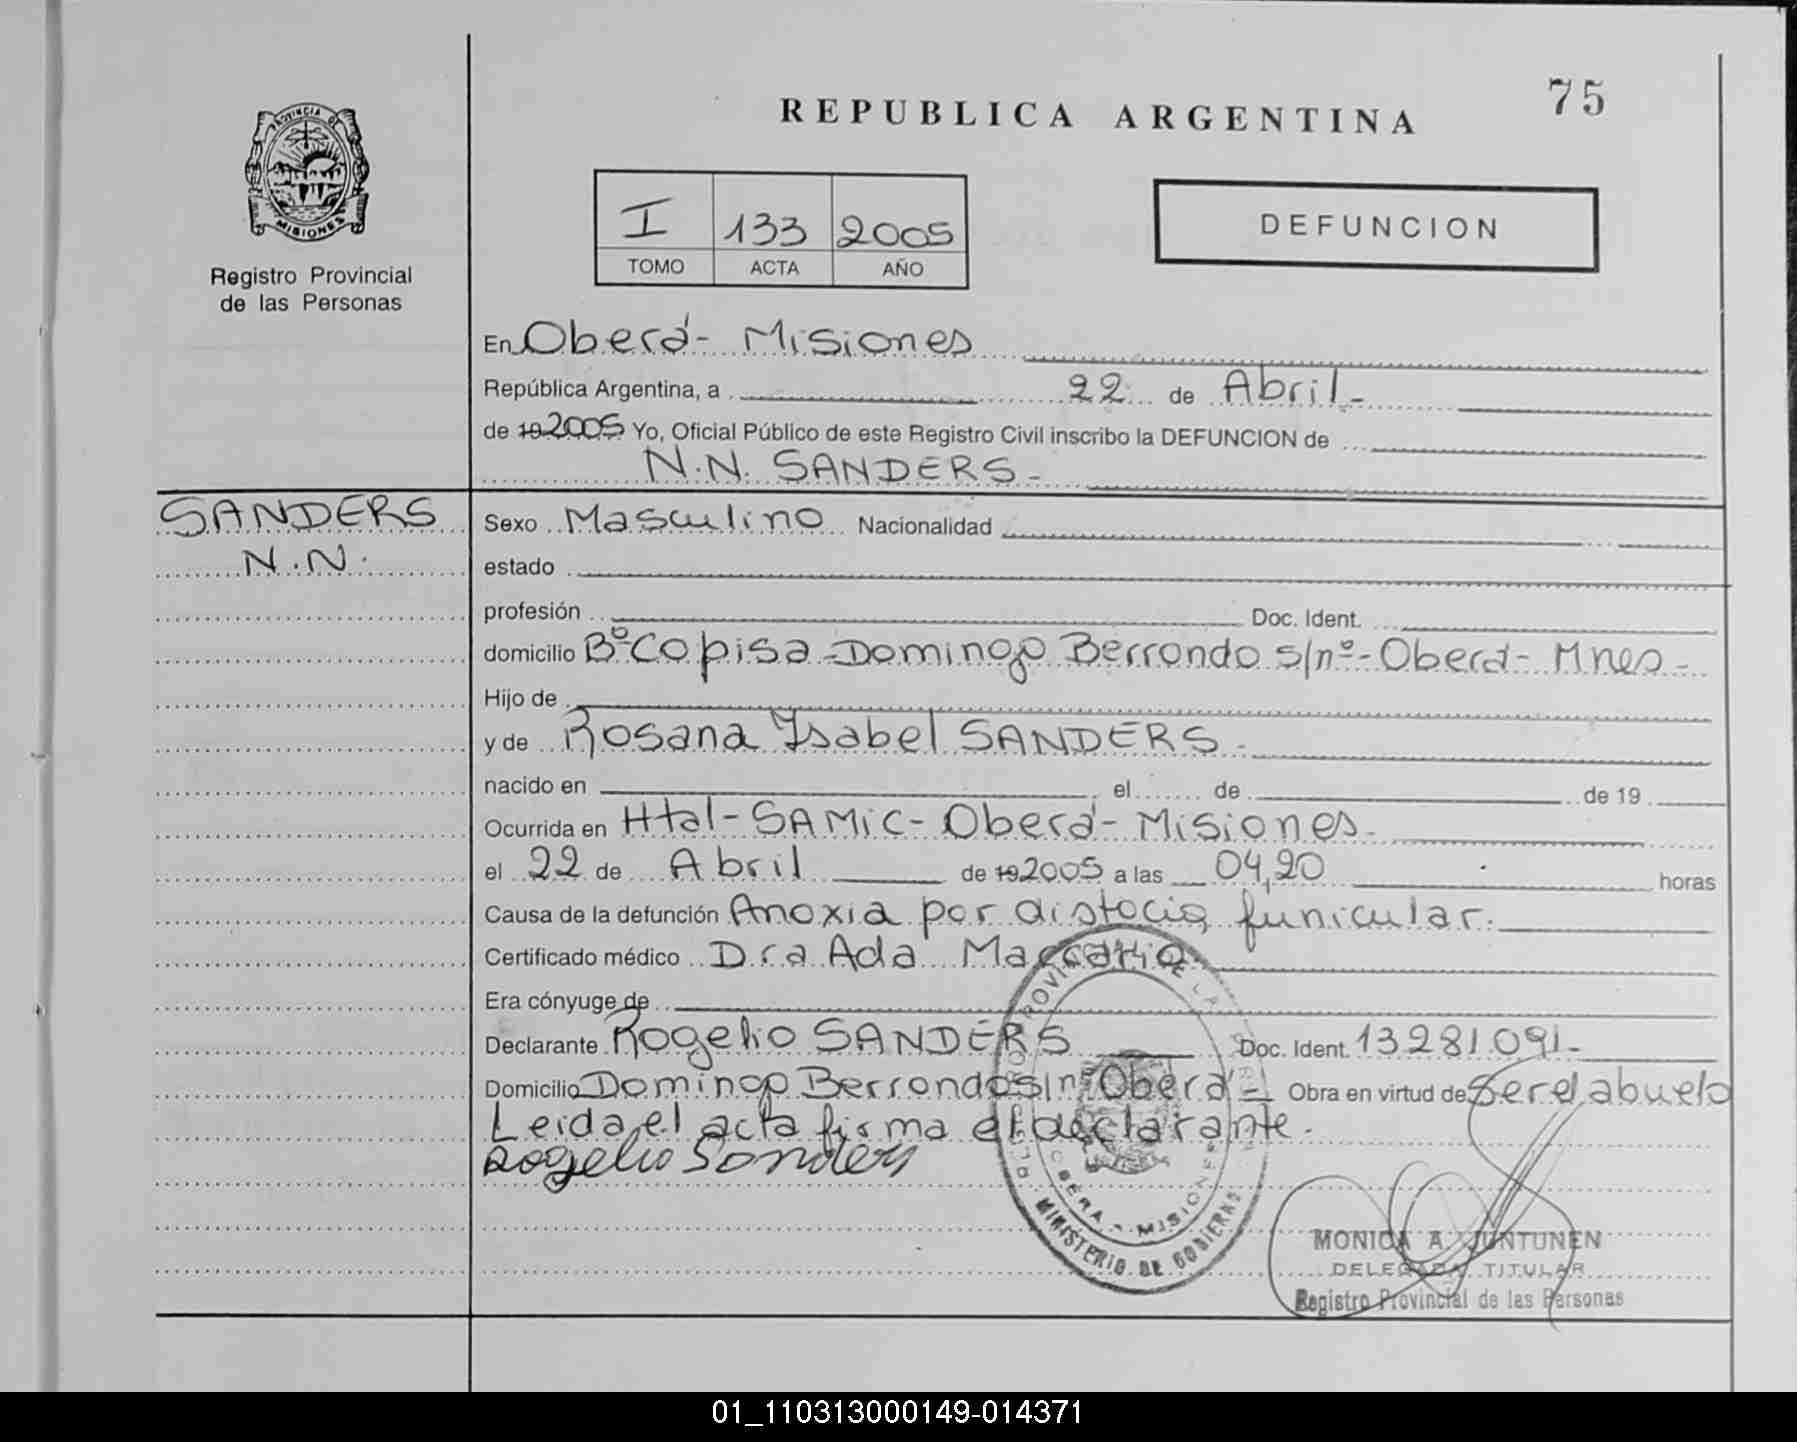 75
REPUBLICA ARGENTINA
PROVINCIA DE
MISIONES
Registro Provincial
de las Personas
I 133 2005
TOMO ACTA AÑO
DEFUNCION
En Oberá - Misiones
República Argentina, a 22 de Abril -
de 19 2005 Yo, Oficial Público de este Registro Civil inscribo la DEFUNCION de
N.N. SANDERS -
SANDERS
N.N.
Sexo Masculino Nacionalidad
estado
profesión Doc. Ident.
domicilio Bº Copisa - Domingo Berrondo s/nº - Oberá - Mnes -
Hijo de
y de Rosana Ysabel SANDERS -
nacido en el de de 19
Ocurrida en Htal - SAMIC - Oberá - Misiones -
el 22 de Abril de 19 2005 a las 04,20 horas
Causa de la defunción Anoxia por distocia funicular.
Certificado médico Dra Ada Maccario
Era cónyuge de
Declarante Rogelio SANDERS Doc. Ident. 13281091 -
Domicilio Domingo Berrondo s/nº Oberá - Obra en virtud de Ser el abuelo
Leida el acta firma el declarante.
Rogelio Sanders
OBERA - MISIONES
MINISTERIO DE GOBIERNO
MONICA A. JUNTUNEN
DELEGADA TITULAR
Registro Provincial de las Personas
01_110313000149-014371